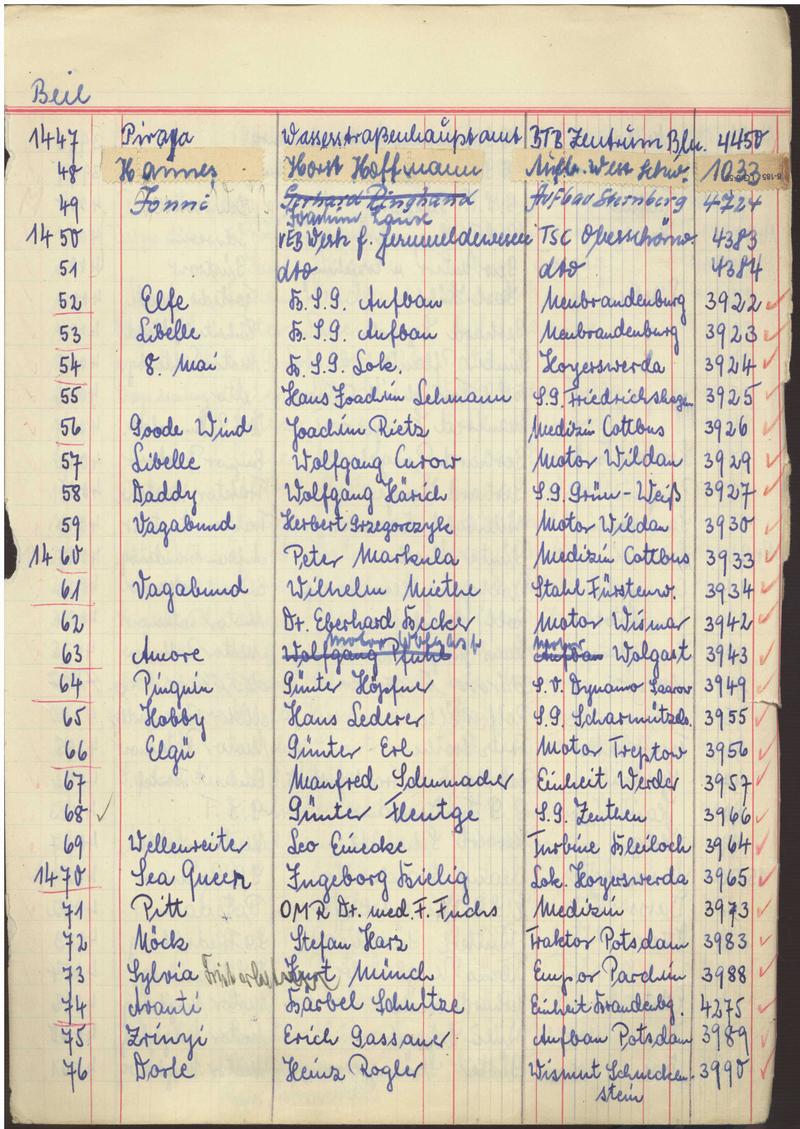 Beil
1447 Piraya Wasserstraßenhauptamt BTB Zentrum Bln. 4450
48 Hannes Horst Hoffmann Aufb. West Schw. 1033
49 Jonni Gerhard Ringhand Aufbau Sternberg 4724
Joachim
1450 VEB Werk f. Fernmeldewesen TSC Oberschönw. 4383
51 dto dto 4384
52 Elfe B.S.G. Aufbau Neubrandenburg 3922
53 Libelle B.S.G. Aufbau Neubrandenburg 3923
54 8. Mai B.S.G. Lok. Hoyerswerda 3924
55 Hans Joachim Lehmann S.G. Friedrichshagen 3925
56 Goode Wind Joachim Rietz Medizin Cottbus 3926
57 Libelle Wolfgang Curow Motor Wildau 3929
58 Daddy Wolfgang Härich S.G. Grün-Weiß 3927
59 Vagabund Herbert Grzegorczyk Motor Wildau 3930
1460 Peter Markula Medizin Cottbus 3933
61 Vagabund Wilhelm Miethe Stahl Fürstenw. 3934
62 Dr. Eberhard Becker Motor Wismar 3942
Motor Wolgast Motor
63 Amore Wolfgang Aufbau Wolgast 3943
64 Pinguin Günter Höpfner S.V. Dynamo Saarow 3949
65 Hobby Hans Lederer S.G. Scharmützels. 3955
66 Elgü Günter Erl Motor Treptow 3956
67 Manfred Schumacher Einheit Werder 3957
68 Günter Flentge S.G. Zeuthen 3966
69 Wellenreiter Leo Einecke Turbine Bleiloch 3964
1470 Sea Queen Ingeborg Bielig Lok. Hoyerswerda 3965
71 Pitt OMR Dr. med. F. Fuchs Medizin 3973
72 Möck Stefan Harz Traktor Potsdam 3983
73 Sylvia Kurt Münch Empor Parchim 3988
74 Avanti Bärbel Schultze Einheit Brandenbg. 4275
75 Zrinyi Erich Gassauer Aufbau Potsdam 3989
76 Dorle Heinz Rogler Wismut Schnecken- 3990
stein